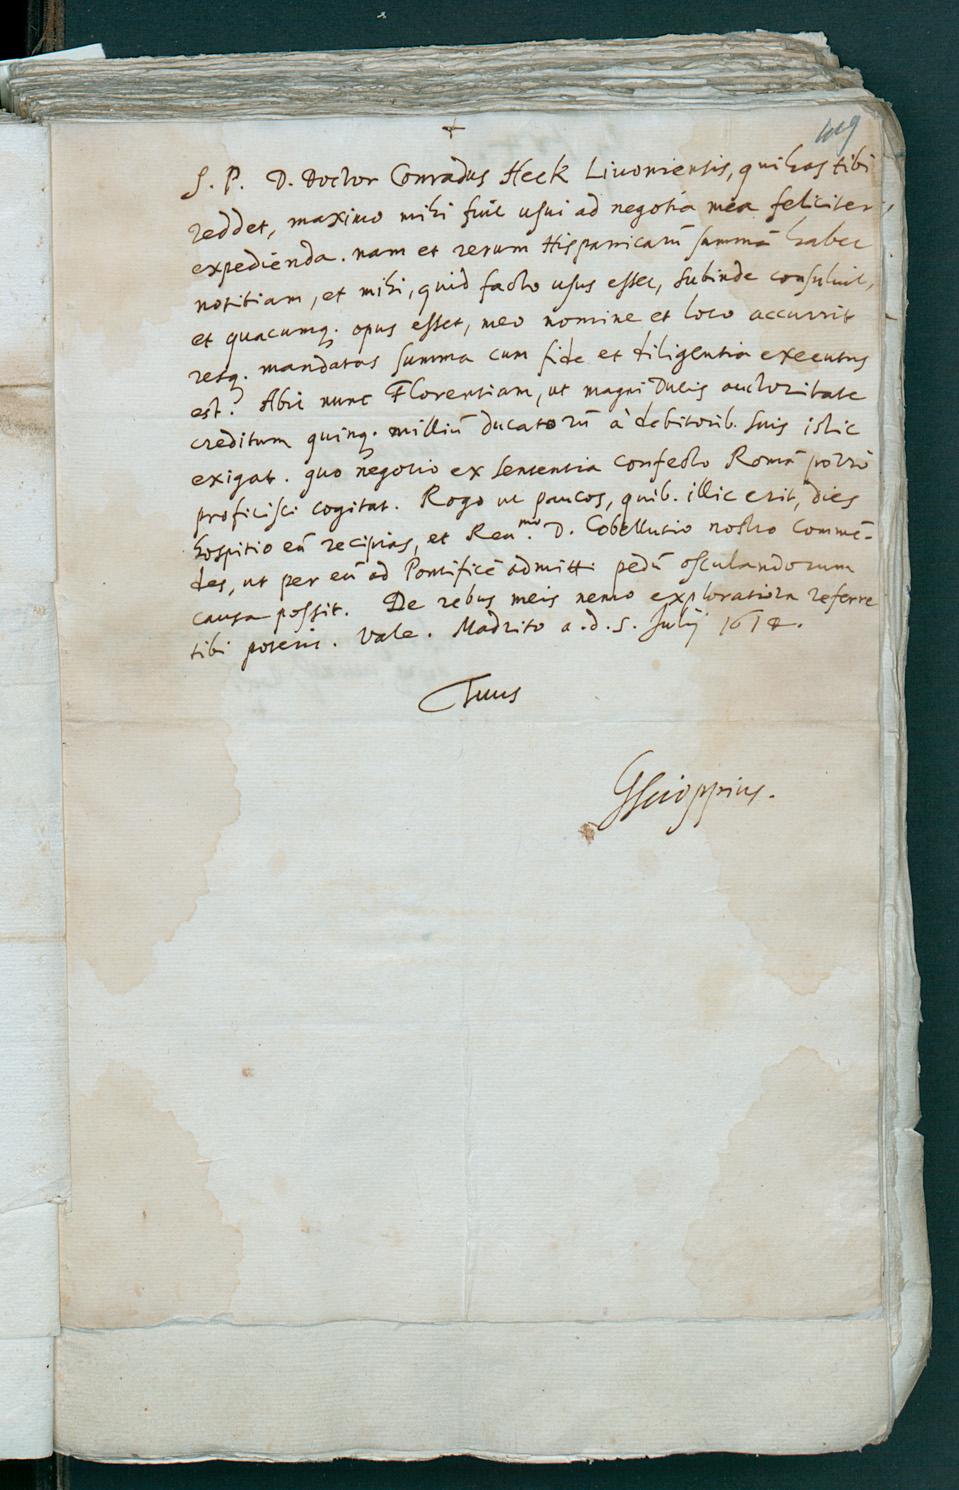 +
419
S. P. D. Doctor Conradus Heck Livoniensis, qui has tibi
reddet, maximo mihi fuit usui ad negotia mea feliciter
expedienda. nam et rerum Hispanicarū summā habet
notitiam, et mihi, quid facto usus esset, subinde consuluit,
et quacumq. opus esset, meo nomine et loco accurrit
resq. mandatas summa cum fide et diligentia executus
est. Abit nunc Florentiam, ut magni Ducis auctoritate
creditum quinq. milliū ducatorū à debitorib. suis istic
exigat. quo negotio ex sententia confecto Romā porrò
proficisci cogitat. Rogo ut paucos, quib. illic erit, dies
hospitio eū recipias, et Reu.mo D. Cobellutio nostro commē-
des, ut per eū ad Pontificē admitti pedū osculandorum
causa possit. De rebus meis nemo exploratiora referre
tibi poterit. Vale. Madrito a. d. 5. Julij 1614.
Tuus
GScioppius.